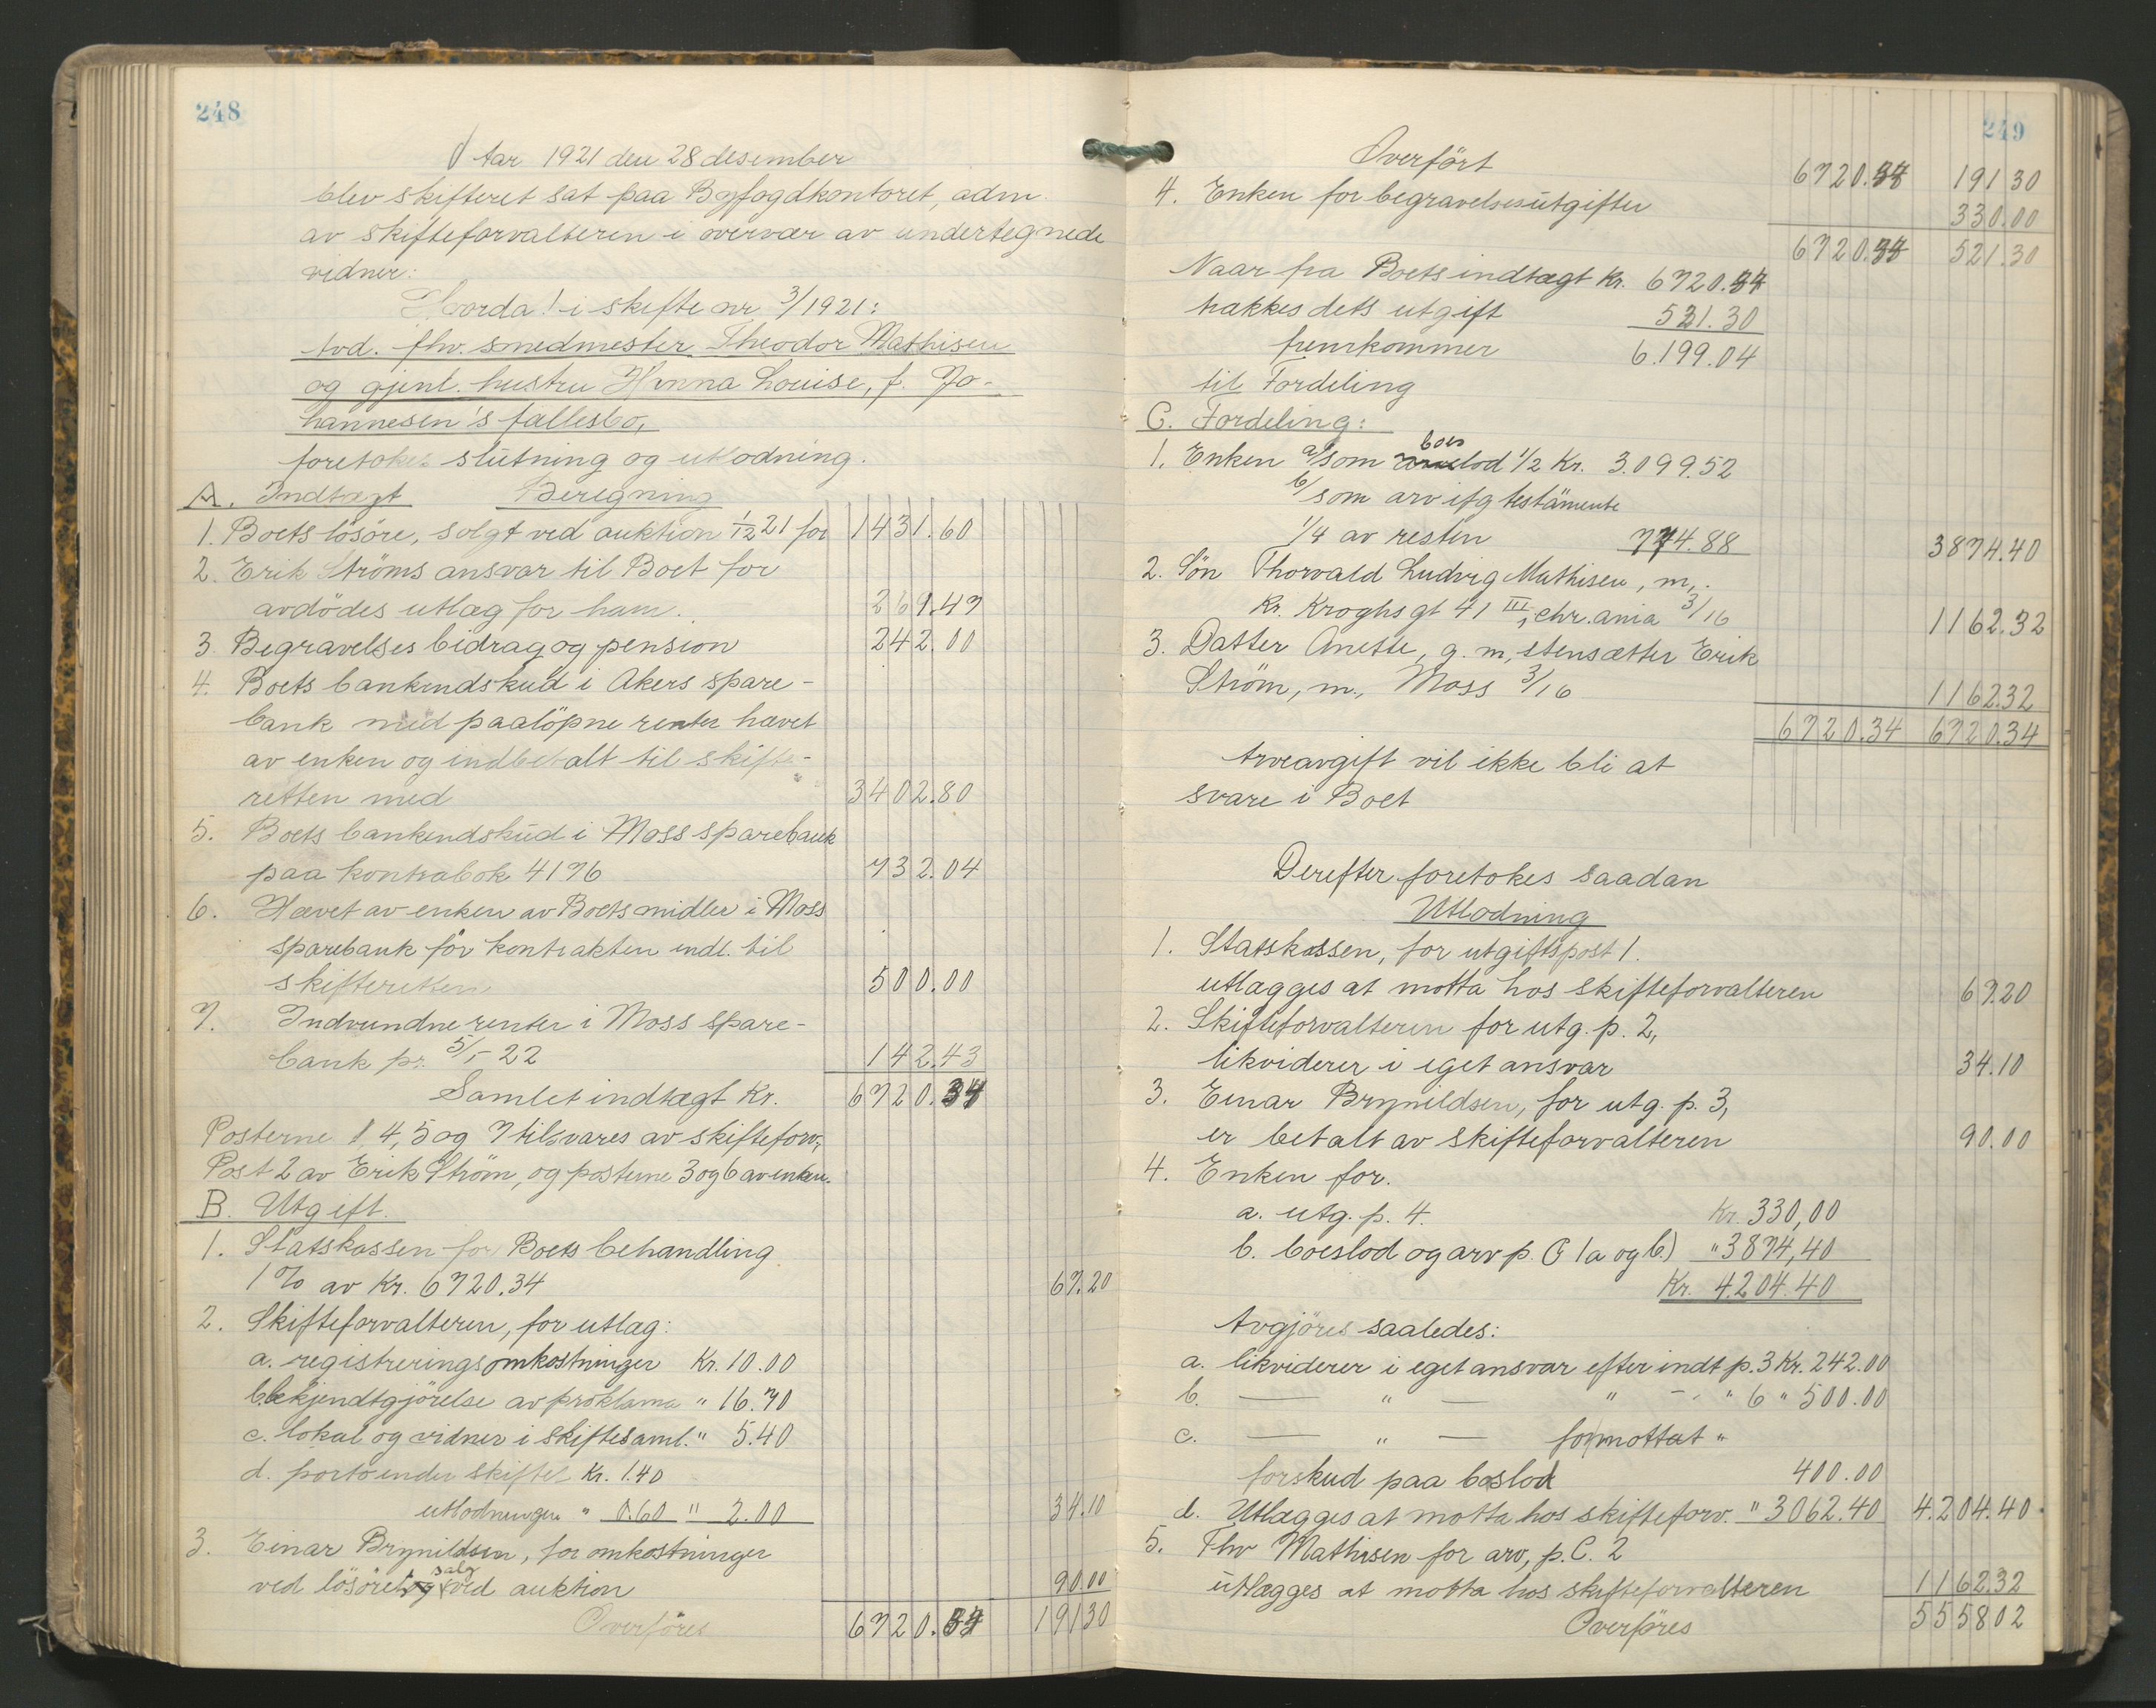 248
Aar 1921 den 28 desember
blev skifteret sat paa Byfogdkontoret, adm.
av skifteforvalteren i overvær av undertegnede
vidner:
Hvorda! i skifte nr 3/1921:
avd. fhv. smedmester Theodor Mathisen
og gjenl. hustru Hanna Louise, f. Jo-
hannesen's fællesbo,
foretokes slutning og utlodning.
A. Indtægt Beregning
1. Boets lösöre, solgt ved auktion 1/12 21 for 1431.60
2. Erik Ströms ansvar til Boet for
avdödes utlæg for ham. 269.47
3. Begravelses bidrag og pension 242.00
4. Boets bankindskud i Akers spare-
bank med paalöpne renter hævet
av enken og indbetalt til skifte-
retten med 3402.80
5. Boets bankindskud i Moss sparebank
paa kontrabok 4176 732.04
6. Hævet av enken av Boets midler i Moss
sparebank för kontrakten indl. til
skifteretten 500.00
7. Indvundne renter i Moss spare-
bank pr. 5/1-22 142.43
Samlet indtægt Kr. 6720.34
Posterne 1, 4, 5 og 7 tilsvares av skifteforv.,
Post 2 av Erik Ström, og posterne 3 og 6 av enken.
B. Utgift.
1. Statskassen for Boets behandling
1% av Kr. 6720.34 67.20
2. Skifteforvalteren, for utlæg:
a. registreringsomkostninger Kr. 10.00
b. bekjendtgjörelse av proklama " 16.70
c. lokal og vidner i skiftesaml. " 5.40
d. porto under skiftet Kr. 1.40
utlodningen " 0.60 " 2.00 34.10
3. Einar Brynildsen, for omkostninger
ved lösörets salg ved auktion 90.00
Overföres 6720.34 191.30
249
Overfört 6720.34 191 30
4. Enken for begravelsesutgifter 330.00
6720.34 521.30
Naar fra Boets indtægt Kr. 6720.34
trækkes dets utgift 521.30
fremkommer 6.199.04
til Fordeling
C. Fordeling:
1. Enken a/ som boeslod 1/2 Kr. 3.099.52
b/ som arv ifg testamente
1/4 av resten 774.88 3874.40
2. Sön Thorvald Ludvig Mathisen, m.,
Kr. Kroghs gt 41 III, Chr.ania 3/16 1162.32
3. Datter Anette, g. m. stensætter Erik
Ström, m., Moss 3/16 1162.32
6720.34 6720.34
Arveavgift vil ikke bli at
svare i Boet
Derefter foretokes saadan
Utlodning
1. Statskassen, for utgiftspost 1.
utlægges at motta hos skifteforvalteren 67.20
2. Skifteforvalteren for utg. p. 2,
likviderer i eget ansvar 34.10
3. Einar Brynildsen, for utg. p. 3,
er betalt av skifteforvalteren 90.00
4. Enken for.
a. utg. p. 4. Kr. 330,00
b. boeslod og arv p. C 1a og b.) " 3874,40
Kr. 4.204.40
Avgjöres saaledes:
a. likviderer i eget ansvar efter indt p. 3 Kr. 242.00
b. — " — " — " 6 " 500.00
c. — " — for mottat "
forskud paa boslod 400.00
d. Utlægges at motta hos skifteforv. " 3062.40 4.204.40
5. Thv Mathisen for arv, p. C. 2
utlægges at motta hos skifteforvalteren 1162.32
Overföres 5558 02